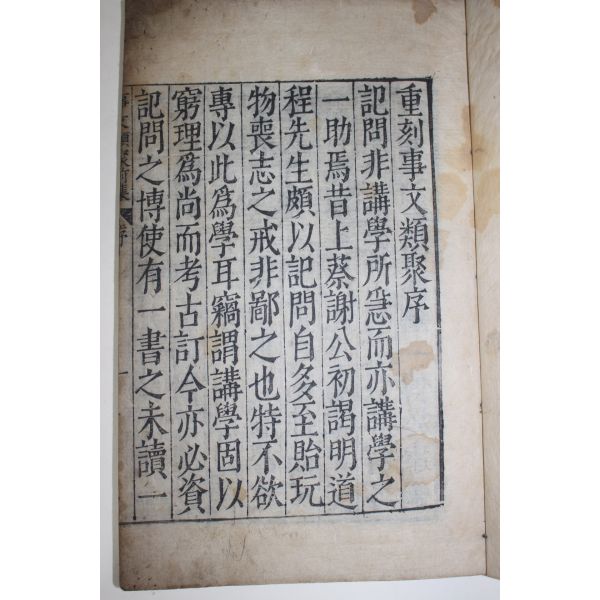 重刻事文類聚序
記問非講學所急而亦講學之
一助焉昔上蔡謝公初謁明道
程先生頗以記問自多至貽玩
物喪志之戒非鄙之也特不欲
專以此爲學耳竊謂講學固以
窮理爲尚而考古訂今亦必資
記問之博使有一書之未讀一
事文類聚前集 序 一